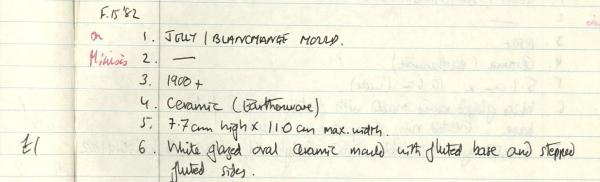 F.15'82
on 1. JELLY / BLANCMANGE MOULD.
2. —
3. 1900+
4. Ceramic (Earthenware)
5. 7.7cm high x 11.0 cm max. width.
£1 6. White glazed oval ceramic mould with fluted base and stepped
fluted sides.